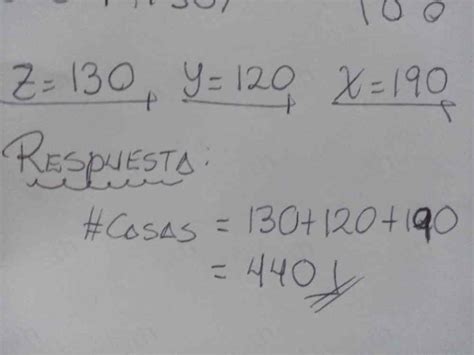 100
Z=130 Y=120 X=190
RESPUESTA:
#CASAS = 130+120+190
= 440